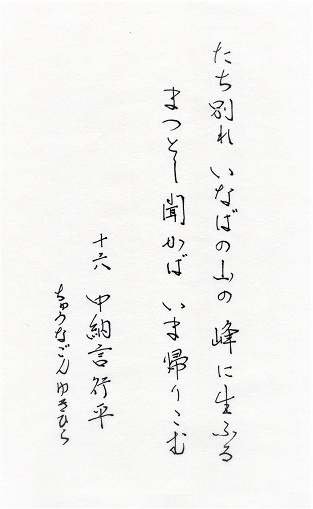 たち別れ いなばの山の 峰に生ふる
まつとし聞かば いま帰りこむ
十六 中納言行平
ちゅうなごんゆきひら